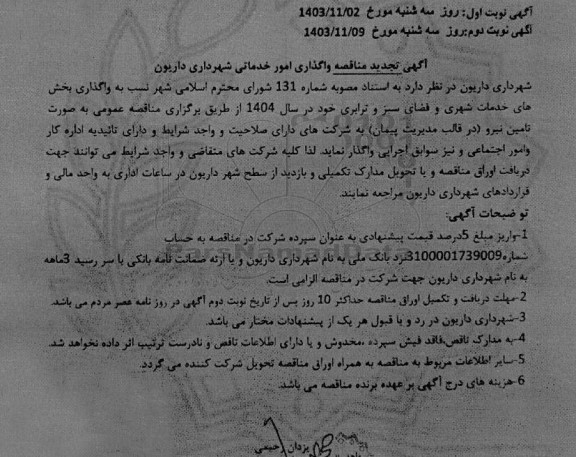 آگهی نوبت اول: روز سه شنبه مورخ 1403/11/02
آگهی نوبت دوم:روز سه شنبه مورخ 1403/11/09
آگهی تجدید مناقصه واگذاری امور خدماتی شهرداری داریون
شهرداری داریون در نظر دارد به استناد مصوبه شماره 131 شورای محترم اسلامی شهر نسب به واگذاری بخش
های خدمات شهری و فضای سبز و ترابری خود در سال 1404 از طریق برگزاری مناقصه عمومی به صورت
تامین نیرو (در قالب مدیریت پیمان) به شرکت های دارای صلاحیت و واجد شرایط و دارای تائیدیه اداره کار
وامور اجتماعی و نیز سوابق اجرایی واگذار نماید. لذا کلیه شرکت های متقاضی و واجد شرایط می توانند جهت
دریافت اوراق مناقصه و یا تحویل مدارک تکمیلی و بازدید از سطح شهر داریون در ساعات اداری به واحد مالی و
قراردادهای شهرداری داریون مراجعه نمایند.
تو ضیحات آگهی:
1-واریز مبلغ 5درصد قیمت پیشنهادی به عنوان سپرده شرکت در مناقصه به حساب
شماره3100001739009نزد بانک ملی به نام شهرداری داریون و یا ارئه ضمانت نامه بانکی با سر رسید 3ماهه
به نام شهرداری داریون جهت شرکت در مناقصه الزامی است.
2-مهلت دریافت و تکمیل اوراق مناقصه حداکثر 10 روز پس از تاریخ نوبت دوم آگهی در روز نامه عصر مردم می باشد.
3-شهرداری داریون در رد و یا قبول هر یک از پیشنهادات مختار می باشد.
4-به مدارک ناقص،فاقد فیش سپرده ،مخدوش و یا دارای اطلاعات ناقص و نادرست ترتیب اثر داده نخواهد شد.
5-سایر اطلاعات مربوط به مناقصه به همراه اوراق مناقصه تحویل شرکت کننده می گردد.
6-هزینه های درج آگهی بر عهده برنده مناقصه می باشد.
یزدان رحیمی